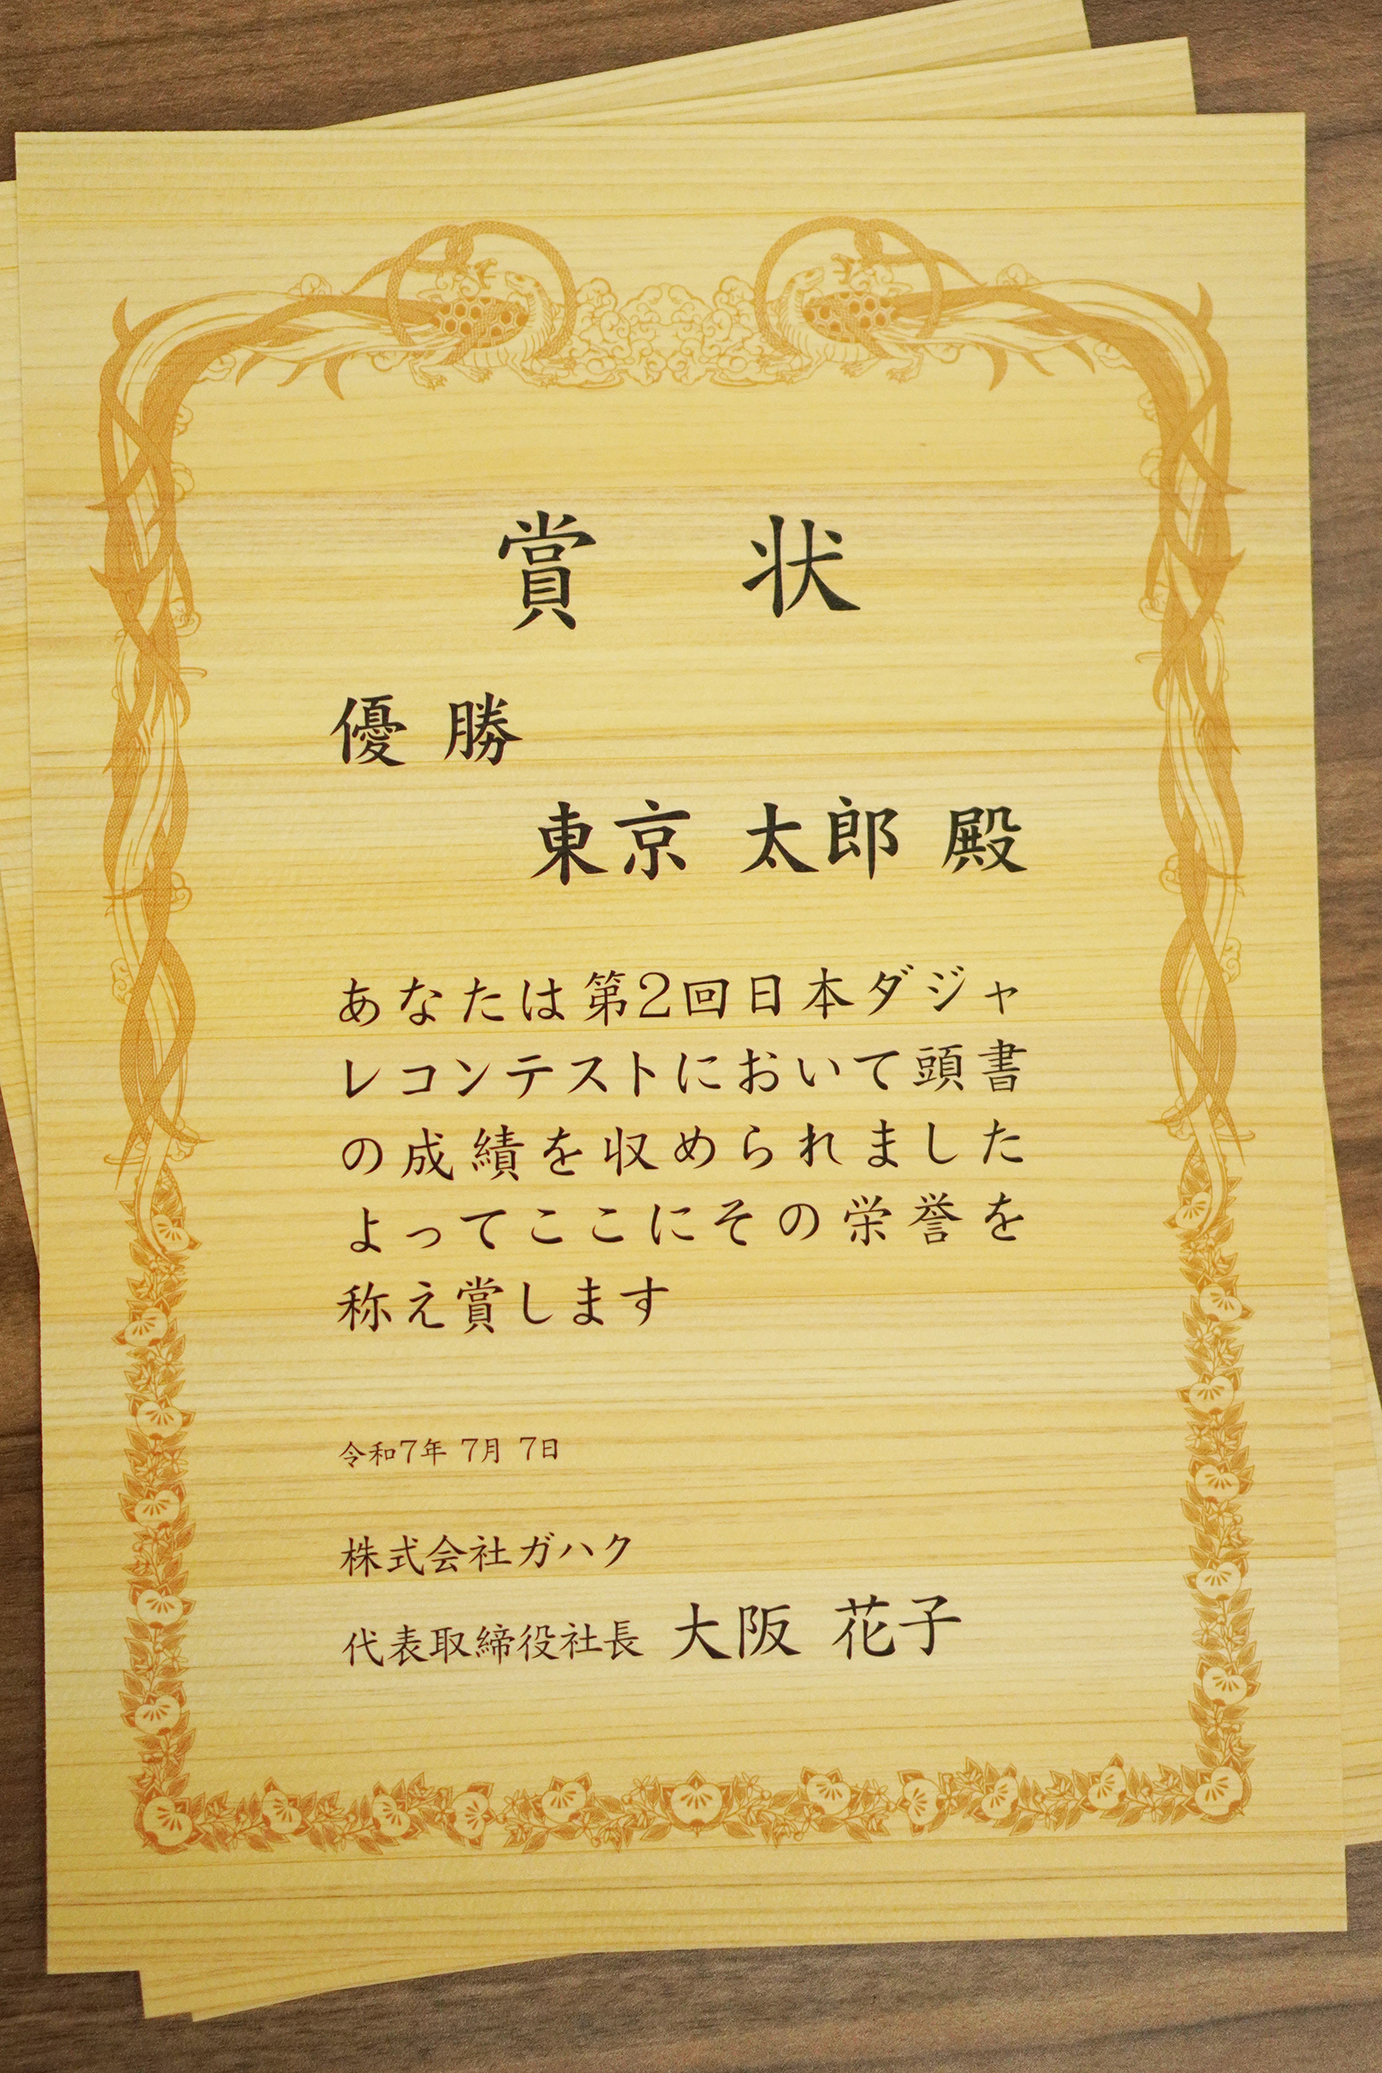 賞 状
優 勝
東京 太郎 殿
あなたは第2回日本ダジャ
レコンテストにおいて頭書
の成績を収められました
よってここにその栄誉を
称え賞します
令和7年 7月 7日
株式会社ガハク
代表取締役社長 大阪 花子